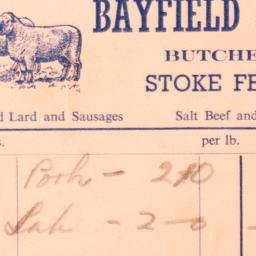 BAYFIELD
BUTCHE
STOKE FE
d Lard and Sausages Salt Beef and
s. per lb.
Pork - 2 10
- 2 - 0